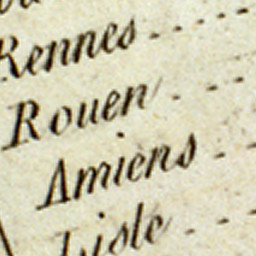 Rennes .....
Rouen . - -
Amiens . -
Lisle . - -